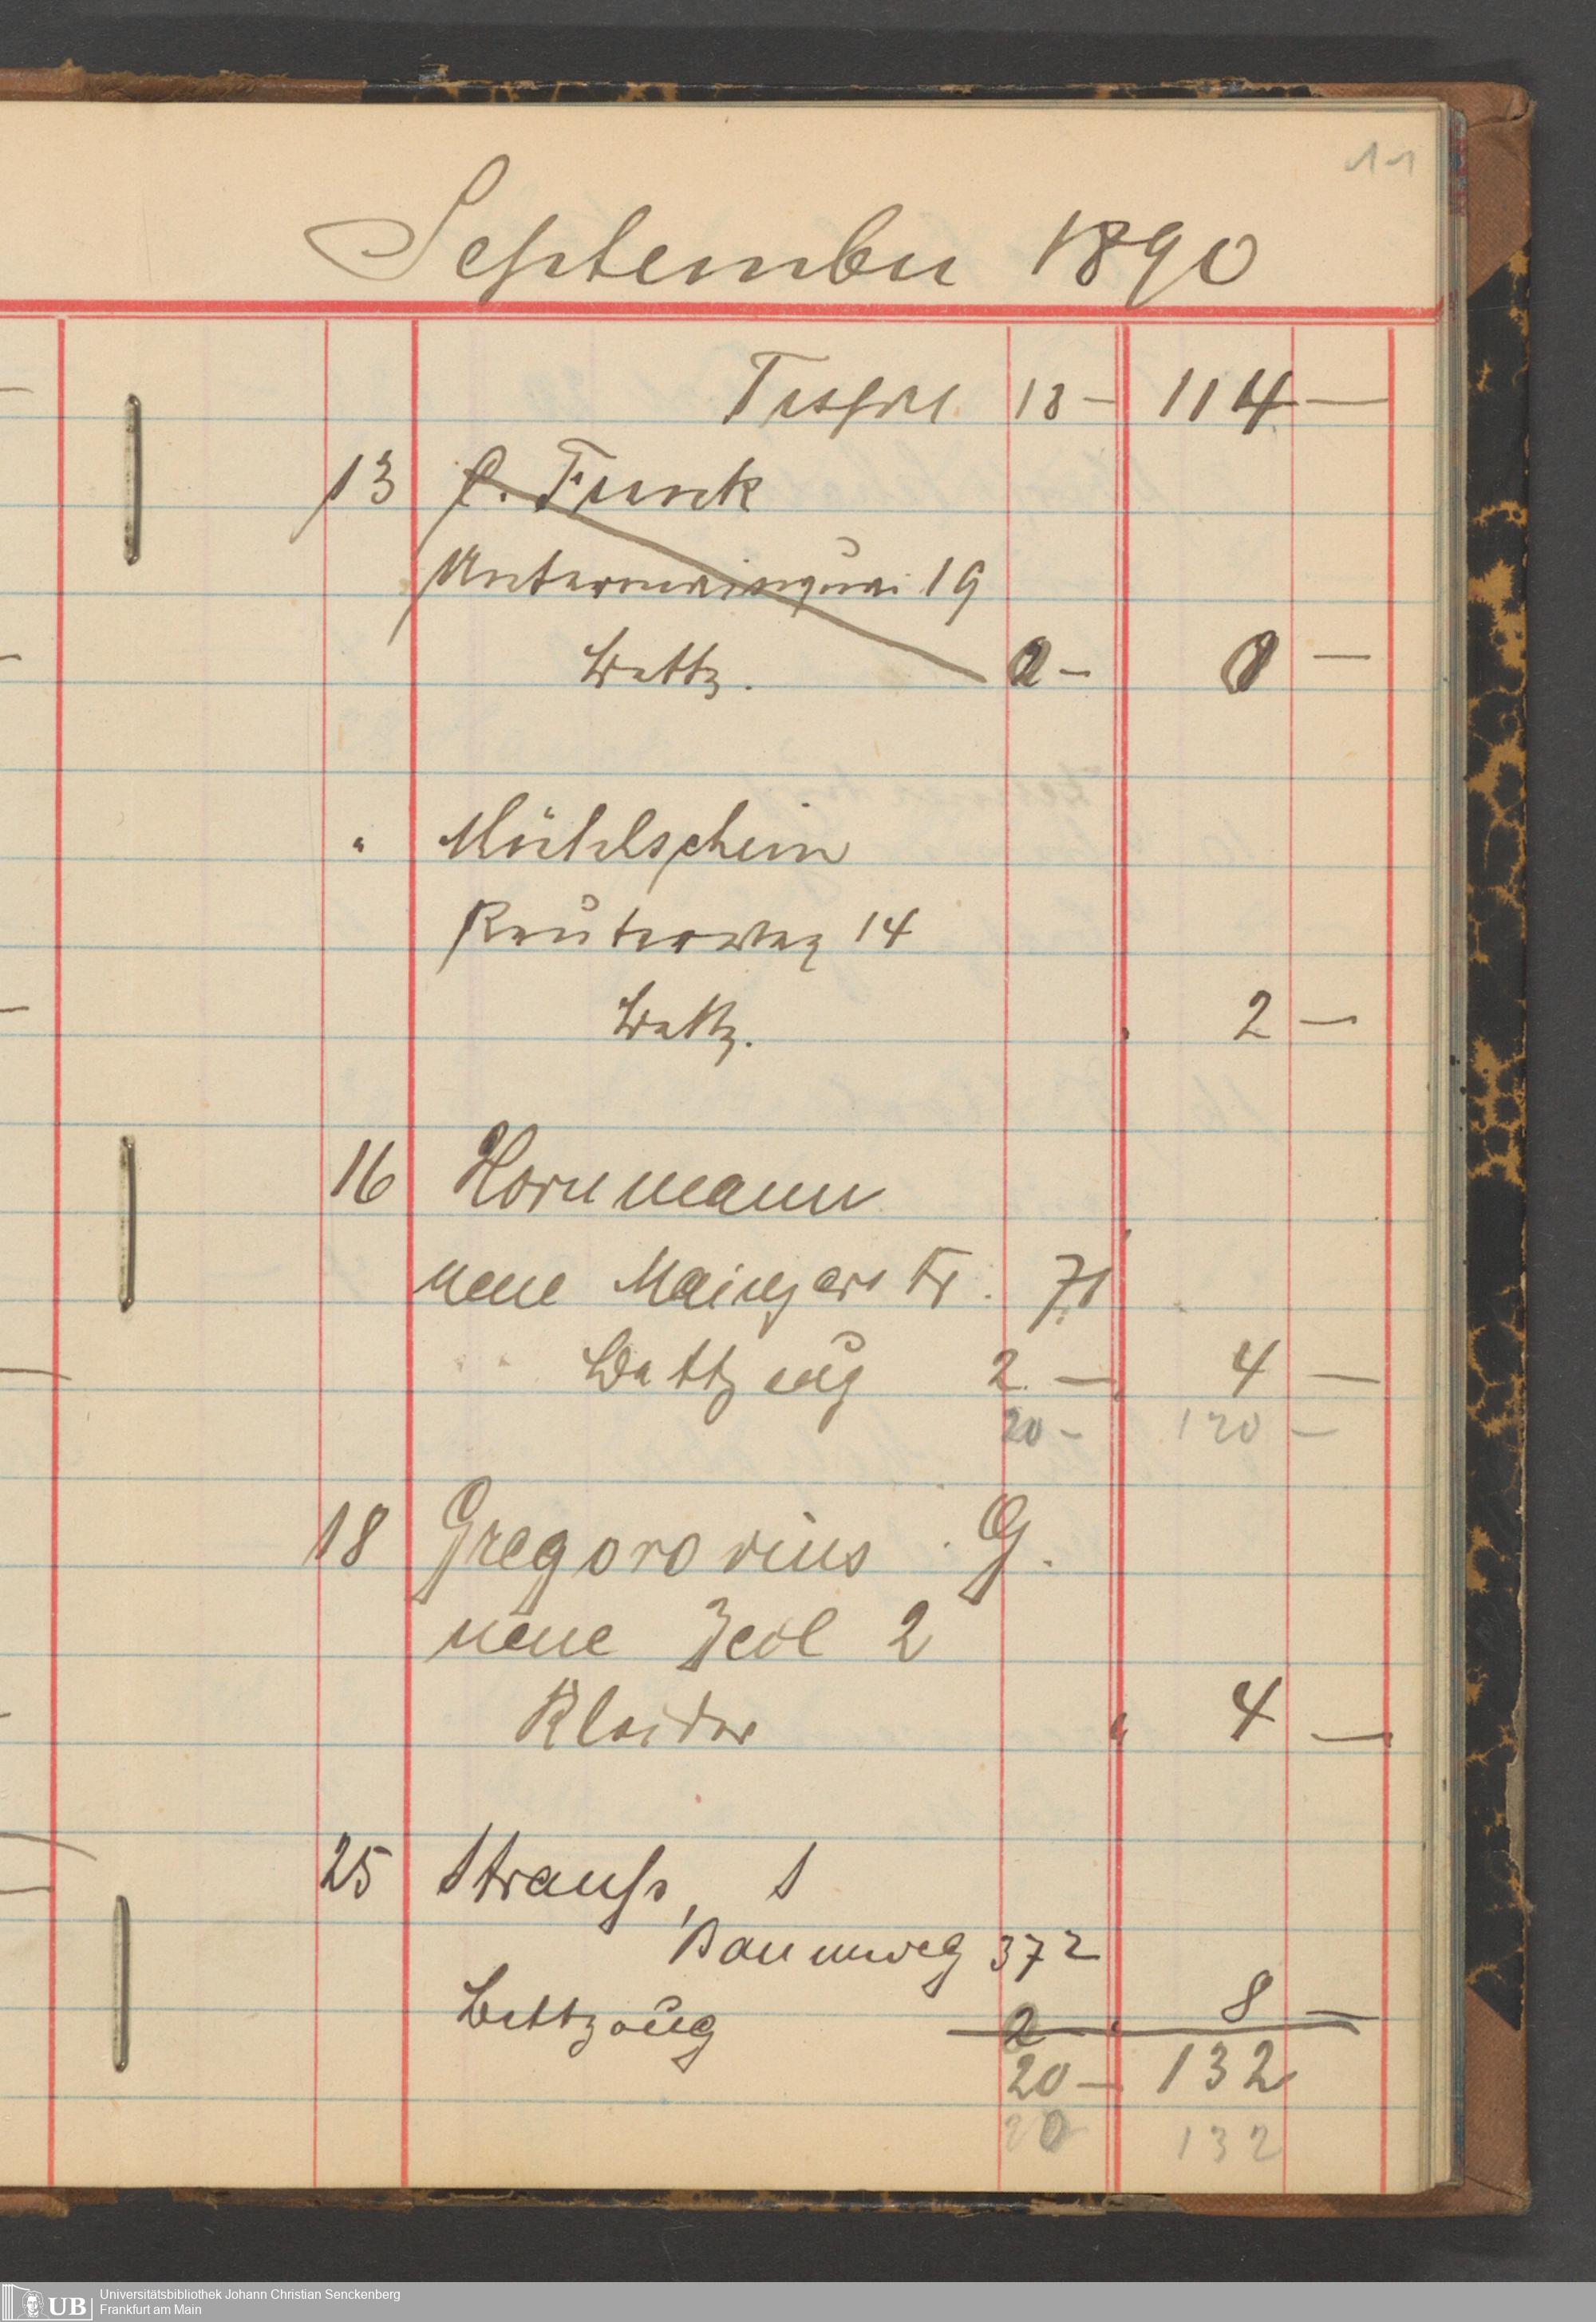 11
September 1890
Trsprt 18 — 114 —
13 C. Funck
Untermainquai 19
Bettz. 0 — 0 —
" Mühlschein
Reuterweg 14
Bettz. 2 —
16 Hornmann
neue Mainzerstr. 71
Bettzeug 2 — 4 —
20 — 120 —
18 Gregorovius G.
neue Zeil 2
Kleider " 4 —
25 Strauss, S
Baumweg 372
Bettzeug 8 —
20 — 132
20 132
UB Universitätsbibliothek Johann Christian Senckenberg
Frankfurt am Main